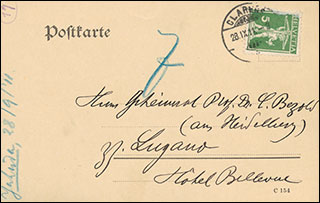 19
Postkarte
CLARENS
28.IX.11
HELVETIA
5
7
Herrn Geheimrat Prof. Dr. C. Bezold
(aus Heidelberg)
z. Z. Lugano
Hôtel Bellevue
C 154
28/9/11